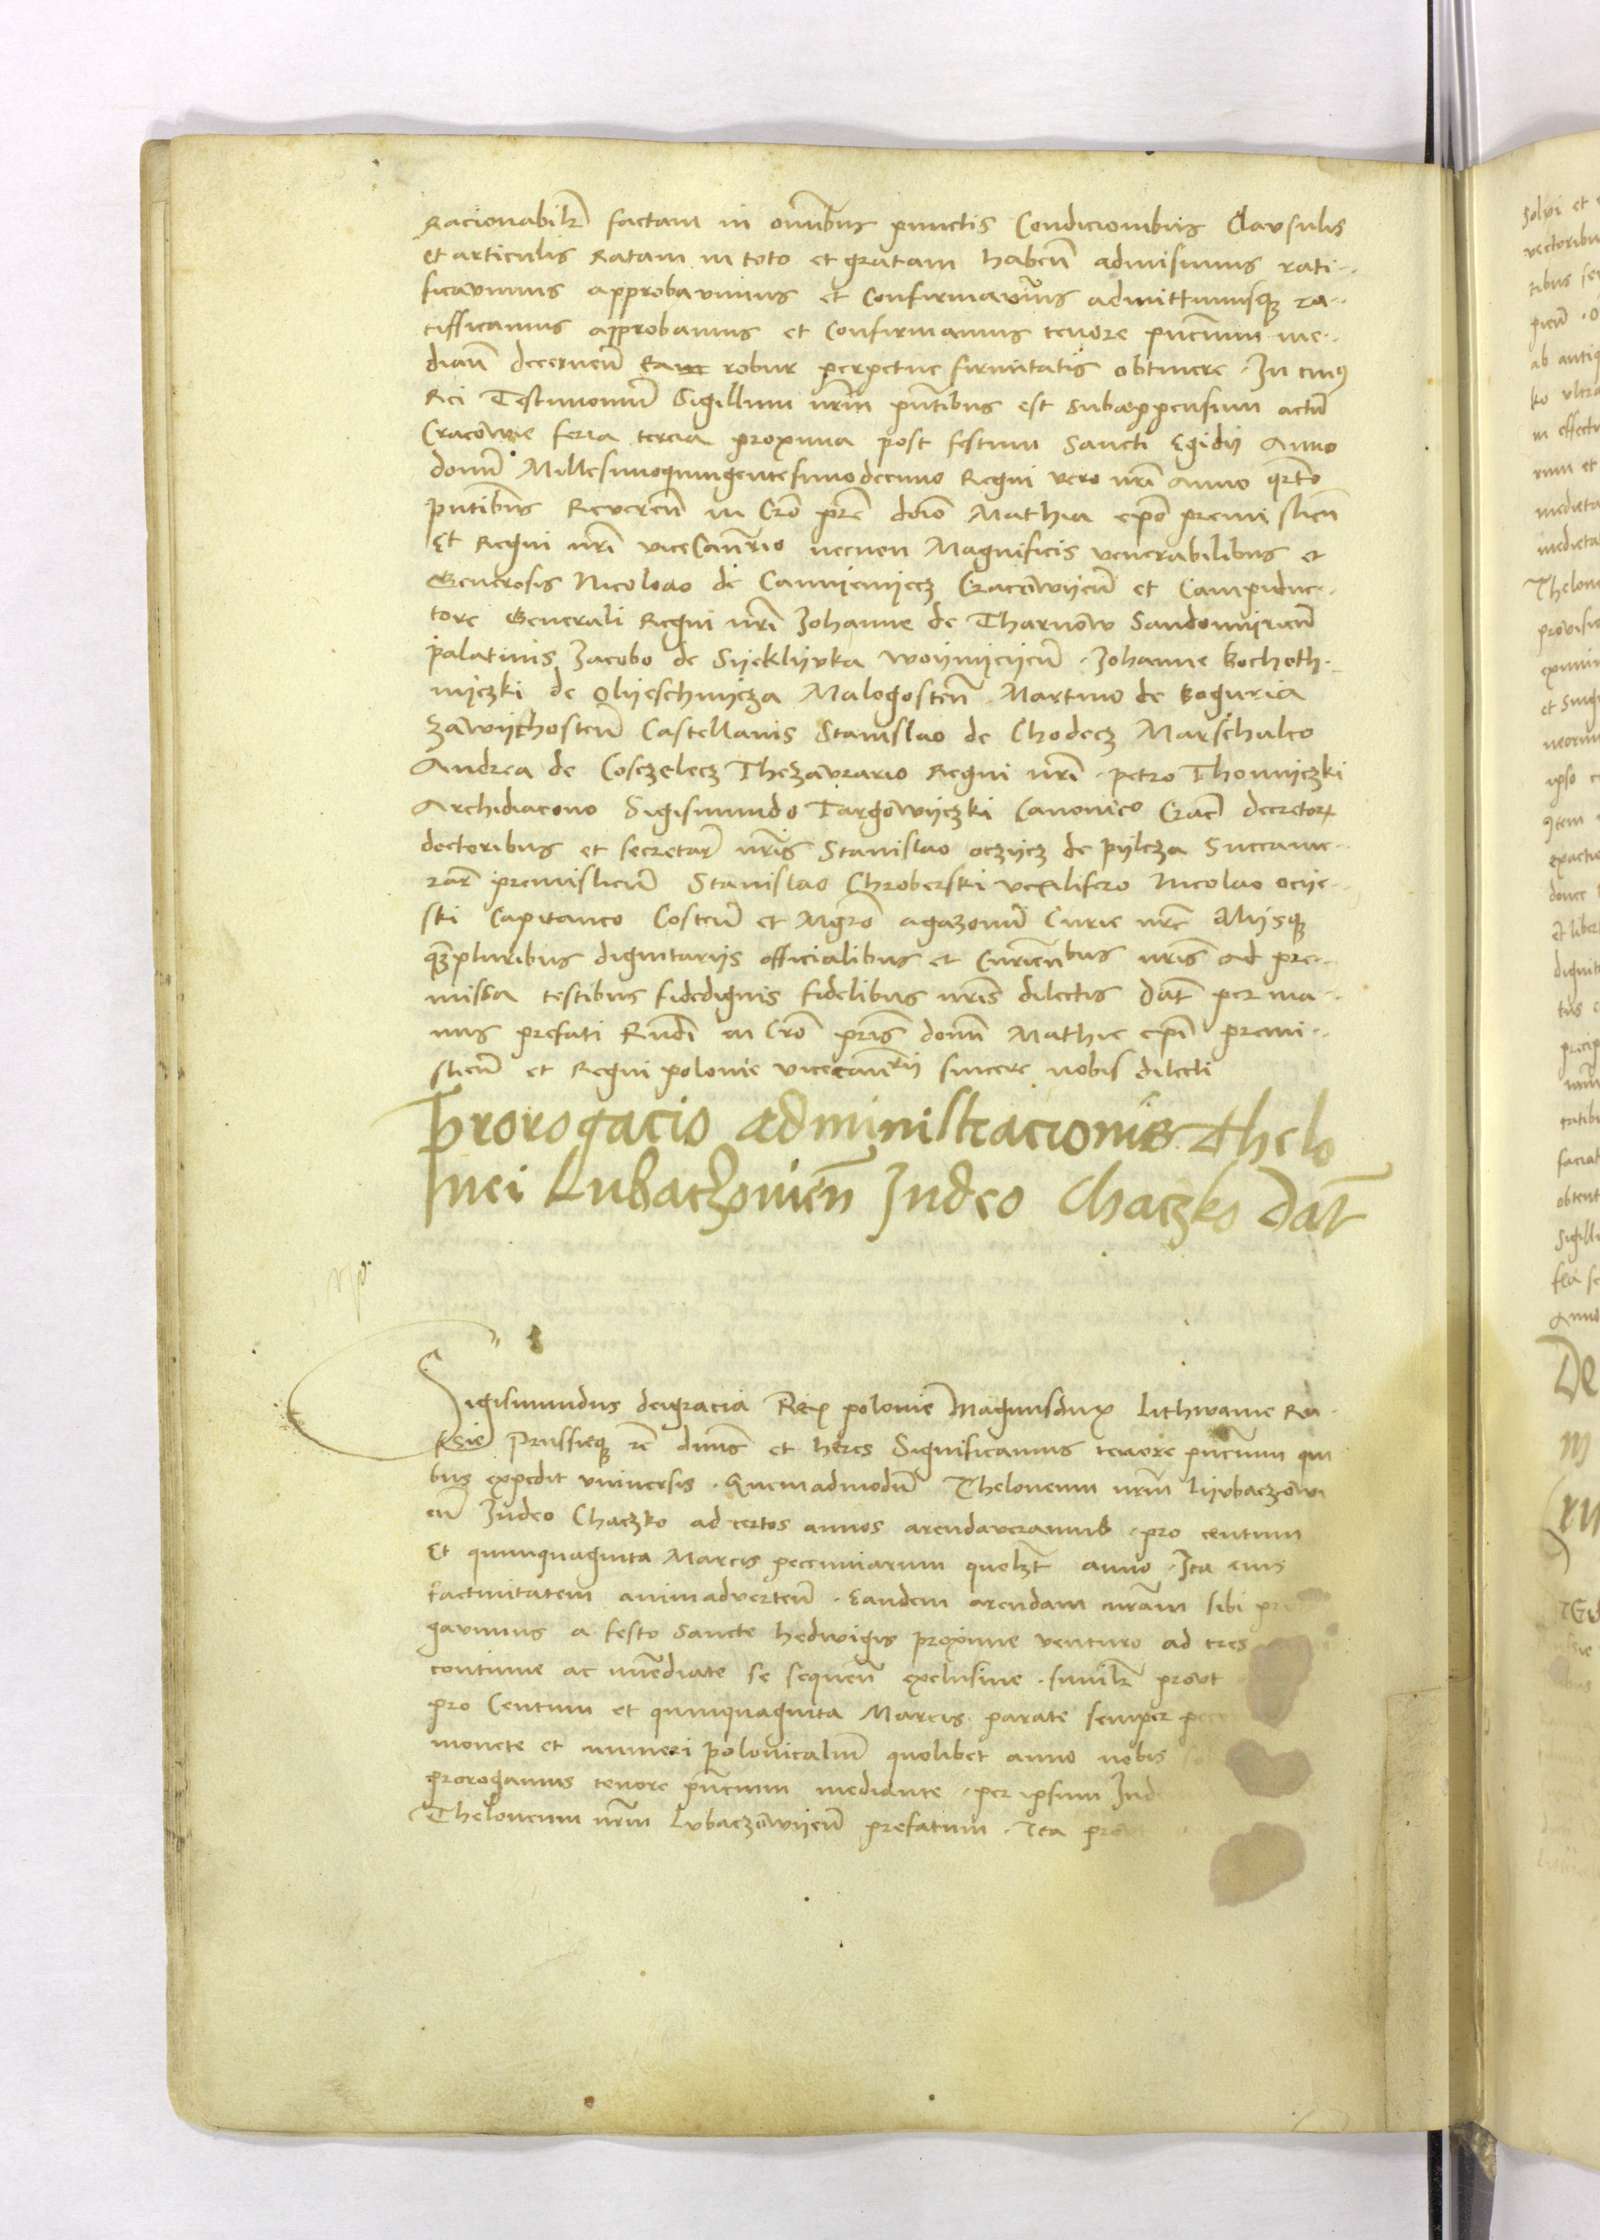 Racionabilr factam in omnibus punctis Condicionibus Clausulis
et articulis Ratam in toto et gratam haben admisimus rati-
ficavimus approbavimus et Confirmavimus admittimusq ra-
tifficamus approbamus et Confirmamus tenore pncium me-
dian decernen Eamque robur perpetue firmitatis obtinere. In cuius
Rei Testimonium Sigillum nrm pntibus est subappensum actum
Cracowie feria tercia proxima post festum Sancti Egidii Anno
domini Millesimoquingentesimodecimo Regni vero nri anno qrto
pntibus Reveren in Cro pre dno Mathia epo premislien
Et Regni nri viceCanrio necnon Magnificis venerabilibus et
Generosis Nicolao de Camyenyecz Cracowyen et Campiduc-
tore Generali Regni nri Johanne de Tharnow Sandomyrien
palatinis Jacobo de Syeklyvka woynyczyen. Johanne kochoth-
nyczki de Olyeschnycza Malogosten Martino de koguria
Zawychosten Castellanis Stanislao de Chodecz Marschalco
Andrea de Cosczelecz Thezavrario Regni nri. petro Thomyczki
Archidiacono Sigismundo Targowyczki Canonico Crac decretor
doctoribus et secretar nris Stanislao oczycz de pylcza Succame-
rar premislien Stanislao Chroberski vexilifero Nicolao ocye-
ski Capitaneo Costen et Mgro agazonum Curie nre Aliisq
qzpluribus dignitariis officialibus et Curienbus nris ad pre-
missa testibus fidedignis fidelibus nris dilectis Dat per ma-
nus prefati Rndi in Cro pris domi Mathie epi premi-
slien et Regni polonie vicecanrii sincere nobis dilecti
Prorogacio administracionis Thelo
nei Lubaczovien Judeo Chaczko Dat
Sigismundus deigracia Rex polonie Magnusdux Lithwanie Ru-
ssie Prussieq re dnus et heres Significamus tenore pncium qui
bus expedit universis. Quemadmodum Theloneum nrm Lyvbaczowi
en Judeo Chaczko ad certos annos arendaveramus. pro centum
Et quinquaginta Marcis pecuniarum quolzt anno. Ita eius
factivitatem animadverten. Eandem arendam nram sibi pro
gavimus a festo Sancte hedwigis proxime venturo ad tres
continue ac immediate se sequen exclusive. similr prout
pro Centum et quinquaginta Marcis. parate semper pec
monete et numeri polonicalium quolibet anno nobis
prorogamus tenore pncium mediante. per ipsum Jud
Theloneum nrm Lvbaczowyen prefatum. Ita prout